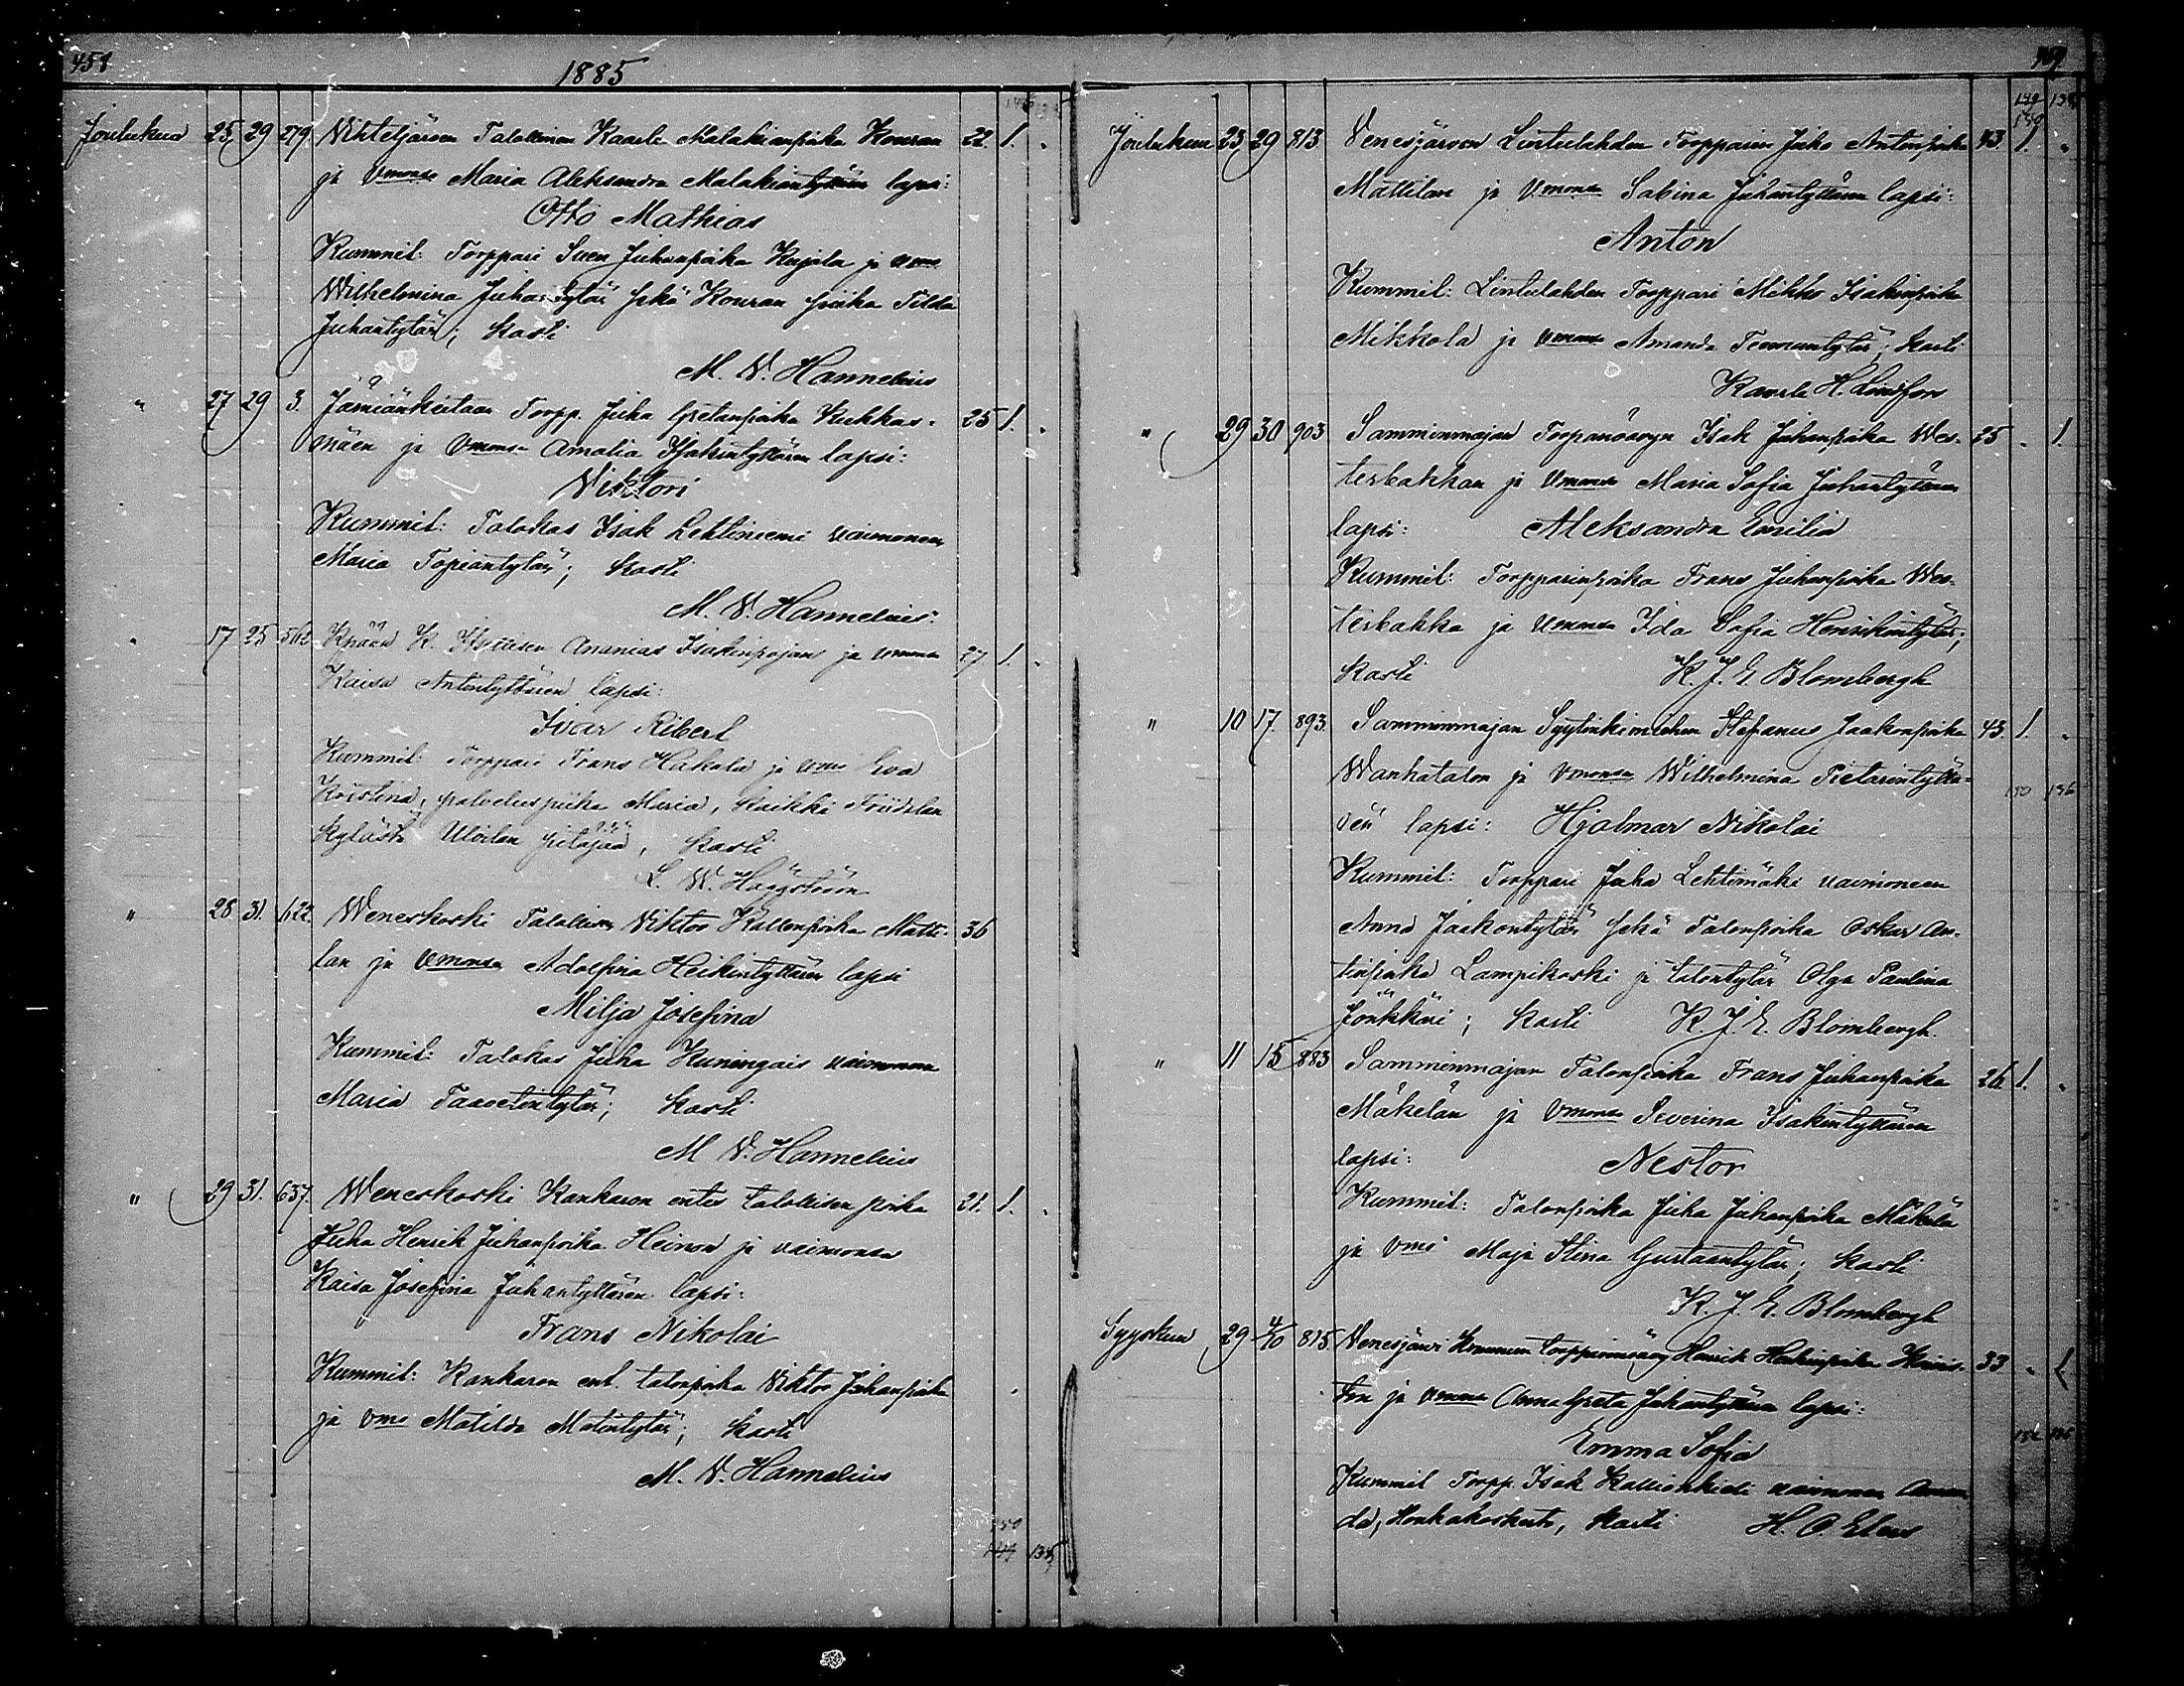 458
1885
Joulukuu 25 29 279. Vihteljärven Talollinen Kaarle Malakianpoika Kouran 22. 1. "
ja Vmonsa Maria Aleksandra Malakiantyttären lapsi:
Otto Mathias
Kummit: Torppari Sven Juhanpoika Kujala ja vmo
Wilhelmina Juhantytär sekä Kouran piika Tilda
Juhantytär; kasti
M. V. Hannelius
" 27 29 3. Jämiänkeitaan Torpp. Juha Gretanpoika Kukkas- 25 1. "
mäen ja Vmonsa Amalia Isakintyttären lapsi:
Viktori
Kummit: Talokas Isak Lehtiniemi vaimoneen
Maria Topiantytär; kasti
M. V. Hannelius.
" 17 25 562 Ananias Isakinpojan ja vmonsa 27 1. "
Kaisa Antintyttären lapsi:
Ivar Ribert
Kummit: Torppari Frans Hakala ja vmo Eva
Kristina, palveluspiika Maria, kaikki Friidslan
kylästä Ulvilan pitäjää, kasti
L. W. Hägström
" 28 31. 622. Weneskoski Talollisen Viktor Kallenpoika Matti- 36
lan ja Vmonsa Adolfina Heikintyttären lapsi
Milja Josefina
Kummit: Talokas Juha Kuningais vaimoneen
Maria Taavetintytär; kasti
M V. Hannelius
" 29 31. 637. Weneskoski Kankaron entis talollisen poika 21. 1. "
Juha Henrik Juhanpoika Heinon ja vaimonsa
Kaisa Josefina Juhantyttären lapsi:
Frans Nikolai
Kummit: Kankaron ent. talonpoika Viktor Juhanpoika
ja vmo Matilda Matintytär; kasti
M. V. Hannelius
150
149 135
459
149 135
150
Joulukuu 23 29 813. Venesjärven Lintulahden Torpparin Juho Antonpoika 43. 1. "
Mattilan ja Vmonsa Sabina Juhantyttären lapsi:
Anton
Kummit: Lintulahden Torppari Mikko Isakinpoika
Mikkola ja vmonsa Amanda Teemuntytär; kasti
Kaarle H. Lindfors
" 29 30 903 Samminmajan Isak Juhanpoika Wes- 25 " 1.
terbakkan ja Vmonsa Maria Sofia Juhantyttären
lapsi: Aleksandra Emilia
Kummit: Torpparinpoika Frans Juhanpoika Wes-
terbakka ja Vmonsa Ida Sofia Henrikintytär;
kasti K. J. E. Blombergh
" 10 17. 893. Samminmajan Syytinkimiehen Stefanus Jaakonpoika 43. 1. "
Wanhatalon ja Vmonsa Wilhelmina Pietarintyttä-
ren lapsi: Hjalmar Nikolai
150 136
Kummit: Torppari Juha Lehtimäki vaimoneen
Anna Jaakontytär sekä Talonpoika Oskar An-
tinpoika Lampikoski ja talontytär Olga Paulina
Jönkkäri; kasti K. J. E. Blombergh.
" 11 15 883 Samminmajan Talonpoika Frans Juhanpoika 26 1. "
Mäkelän ja Vmonsa Severina Isakintyttären
lapsi: Nestor
Kummit: Talonpoika Juha Juhanpoika Mäkelä
ja Vmo Maja Stina Gustaantytär; kasti
K. J. E. Blombergh
Syyskuu 29 4/10 815. Venesjärvi Henrik Heikinpoika 33 " 1
ja Vmonsa Anna Greta Juhantyttären lapsi:
Emma Sofia
Kummit Torpp. Isak vaimonsa Aman-
da, Honkakoskelta, kasti H. O. Elers